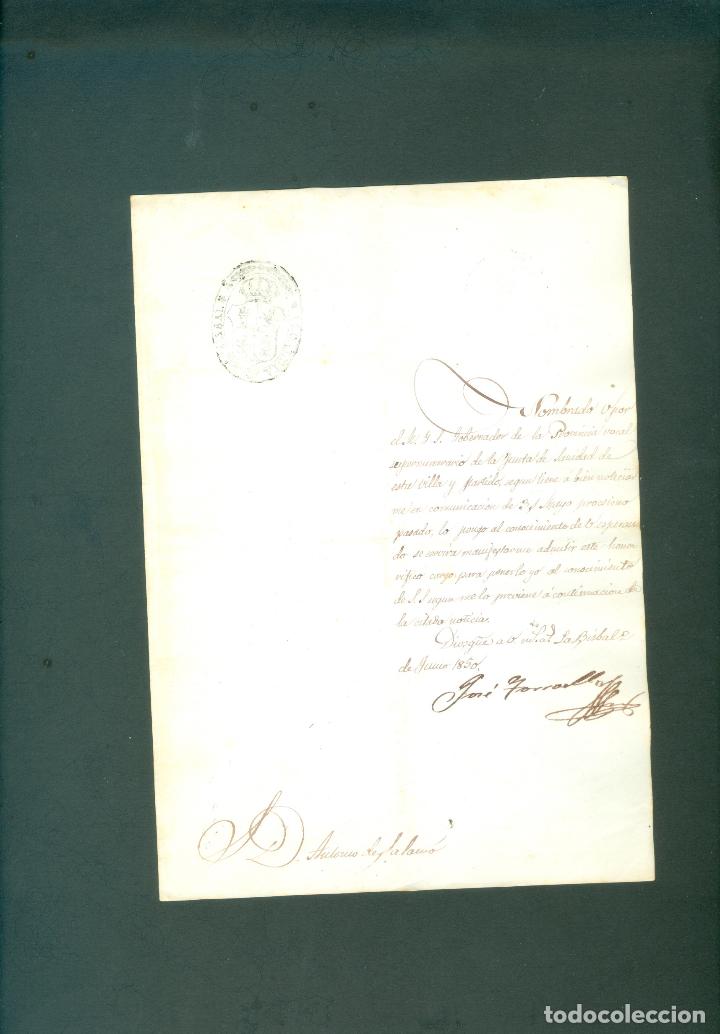 Nombrado V por
el M. Y. S. Gobernador de la Provincia vocal
supernumerario de la Junta de Sanidad de
esta Villa y Partido, segun tiene a bien noticiar
me en comunicacion de 31 Mayo procsimo
pasado, lo pongo al conocimiento de V esperan
do se servira manifestarme admitir este honor
rifico cargo para ponerlo yo al conocimiento
de S. S segun me lo previene á continuacion de
la citada noticia.
Dios gue a V ms. as. La Bisbal 2
de Junio 1850.
José
D. Antonio de
todocoleccion